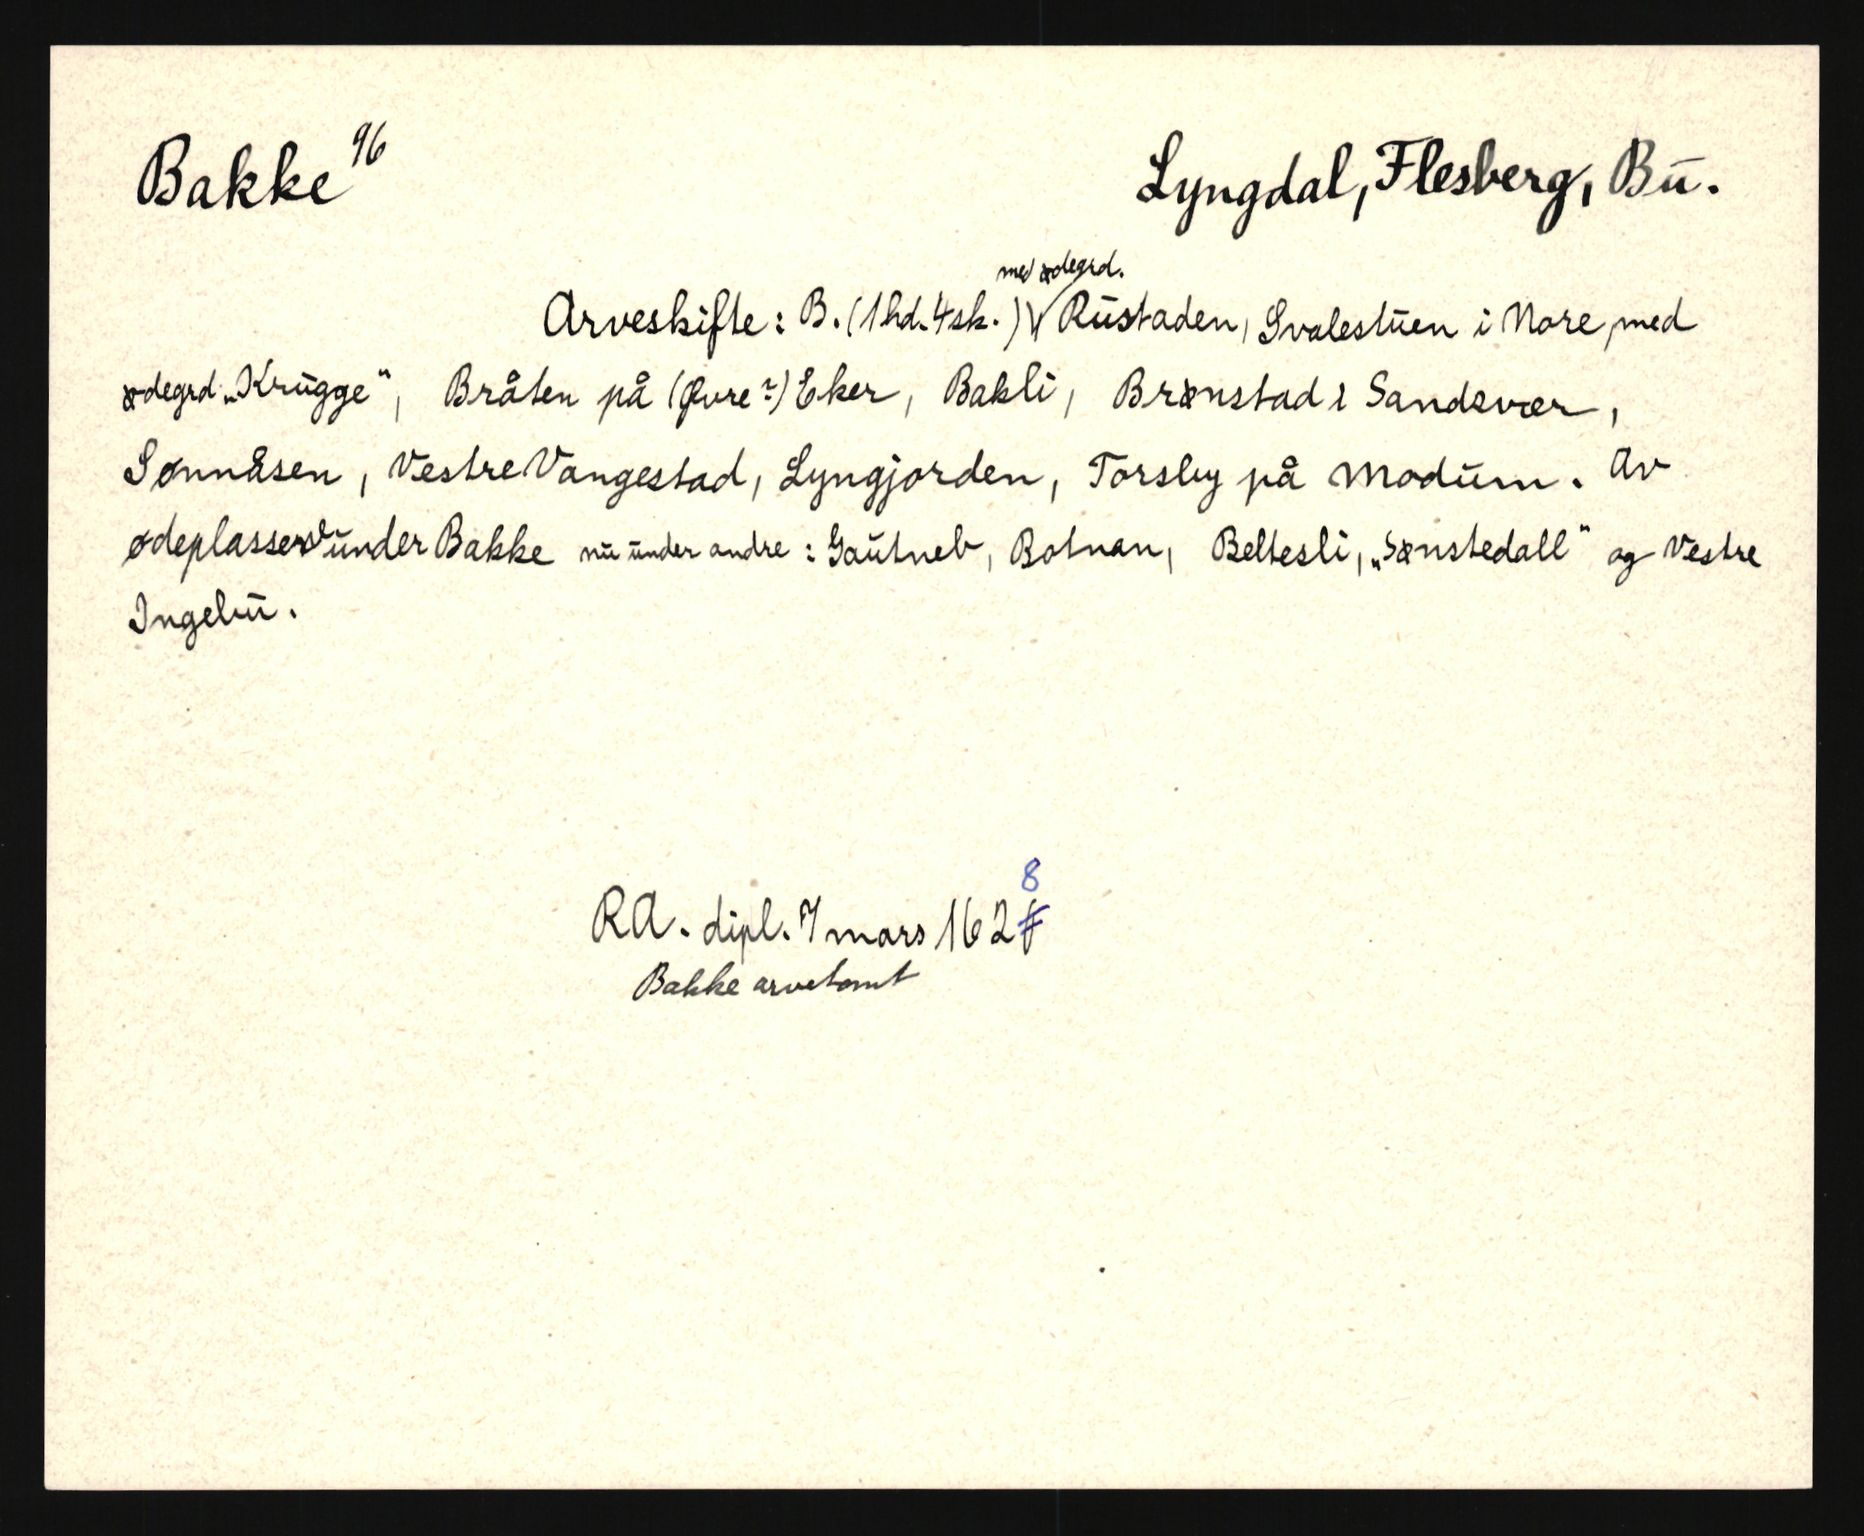 Bakke 96
Lyngdal, Flesberg, Bu.
med ødegrd.
Arveskifte: B. (1 hd. 4 sk.) Rustaden, Svalestuen i Nore, med
ødegrd. „Krugge“, Bråten på (Øvre?) Eker, Bakli, Brønstad i Sandsvær,
Sønnåsen, Vestre Vangestad, Lyngjorden, Torsby på Modum. Av
ødeplasser under Bakke nu under andre: Gautneb, Botnan, Beltesli, „Sønstedall“ og Vestre
Ingebu.
8
RA. dipl. 7 mars 162
Bakke arvetomt